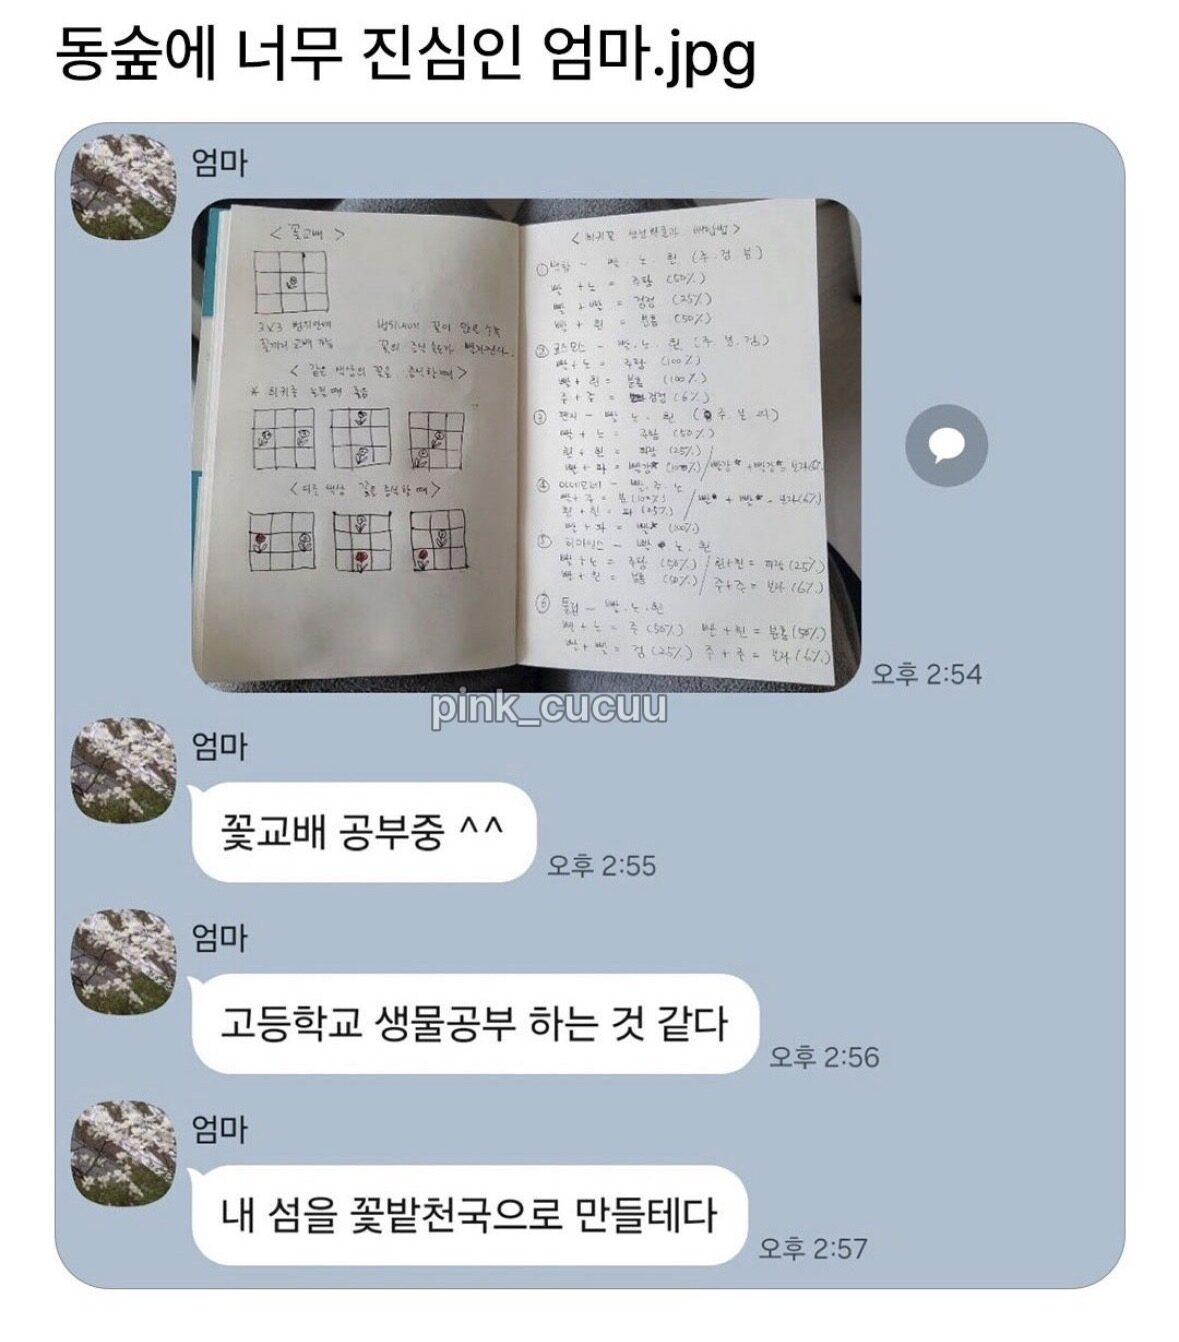 동숲에 너무 진심인 엄마.jpg
엄마
< 꽃교배 >
3X3 범위안에
꽃끼리 교배 가능
범위내에 꽃이 많은수록
꽃의 증식 속도가 빨라진다.
< 같은 색상의 꽃을 증식할때 >
* 희귀종 농정때 죽음
< 다른 색상 꽃을 증식할때 >
< 희귀꽃 생성확률과 배합법 >
① 백합 - 빨.노.흰 (주.검.분)
빨 + 노 = 주황 (50%)
빨 + 빨 = 검정 (25%)
빨 + 흰 = 분홍 (50%)
② 코스모스 - 빨.노.흰 (주.분.검)
빨 + 노 = 주황 (100%)
빨 + 흰 = 분홍 (100%)
주 + 주 = 검정 (6%)
③ 팬지 - 빨 노. 흰 (주.보.파)
빨 + 노 = 주황 (50%)
흰 + 흰 = 파랑 (25%)
빨 + 파 = 빨강* (100%) / 빨강* + 빨강* = 보라(6%)
④ 아네모네 - 빨.주.노
빨 + 주 = 분 (100%) / 빨* + 빨* = 보라(6%)
흰 + 흰 = 파 (25%)
빨 + 파 = 빨* (100%)
⑤ 히아신스 - 빨 노. 흰
빨 + 노 = 주황 (50%) / 흰+흰 = 파랑 (25%)
빨 + 흰 = 분홍 (50%) / 주+주 = 보라 (6%)
⑥ 튤립 - 빨.노.흰
빨 + 노 = 주 (50%) 빨 + 흰 = 분홍 (50%)
빨 + 빨 = 검 (25%) 주 + 주 = 보라 (6%)
오후 2:54
pink_cucuu
엄마
꽃교배 공부중 ^^
오후 2:55
엄마
고등학교 생물공부 하는 것 같다
오후 2:56
엄마
내 섬을 꽃밭천국으로 만들테다
오후 2:57